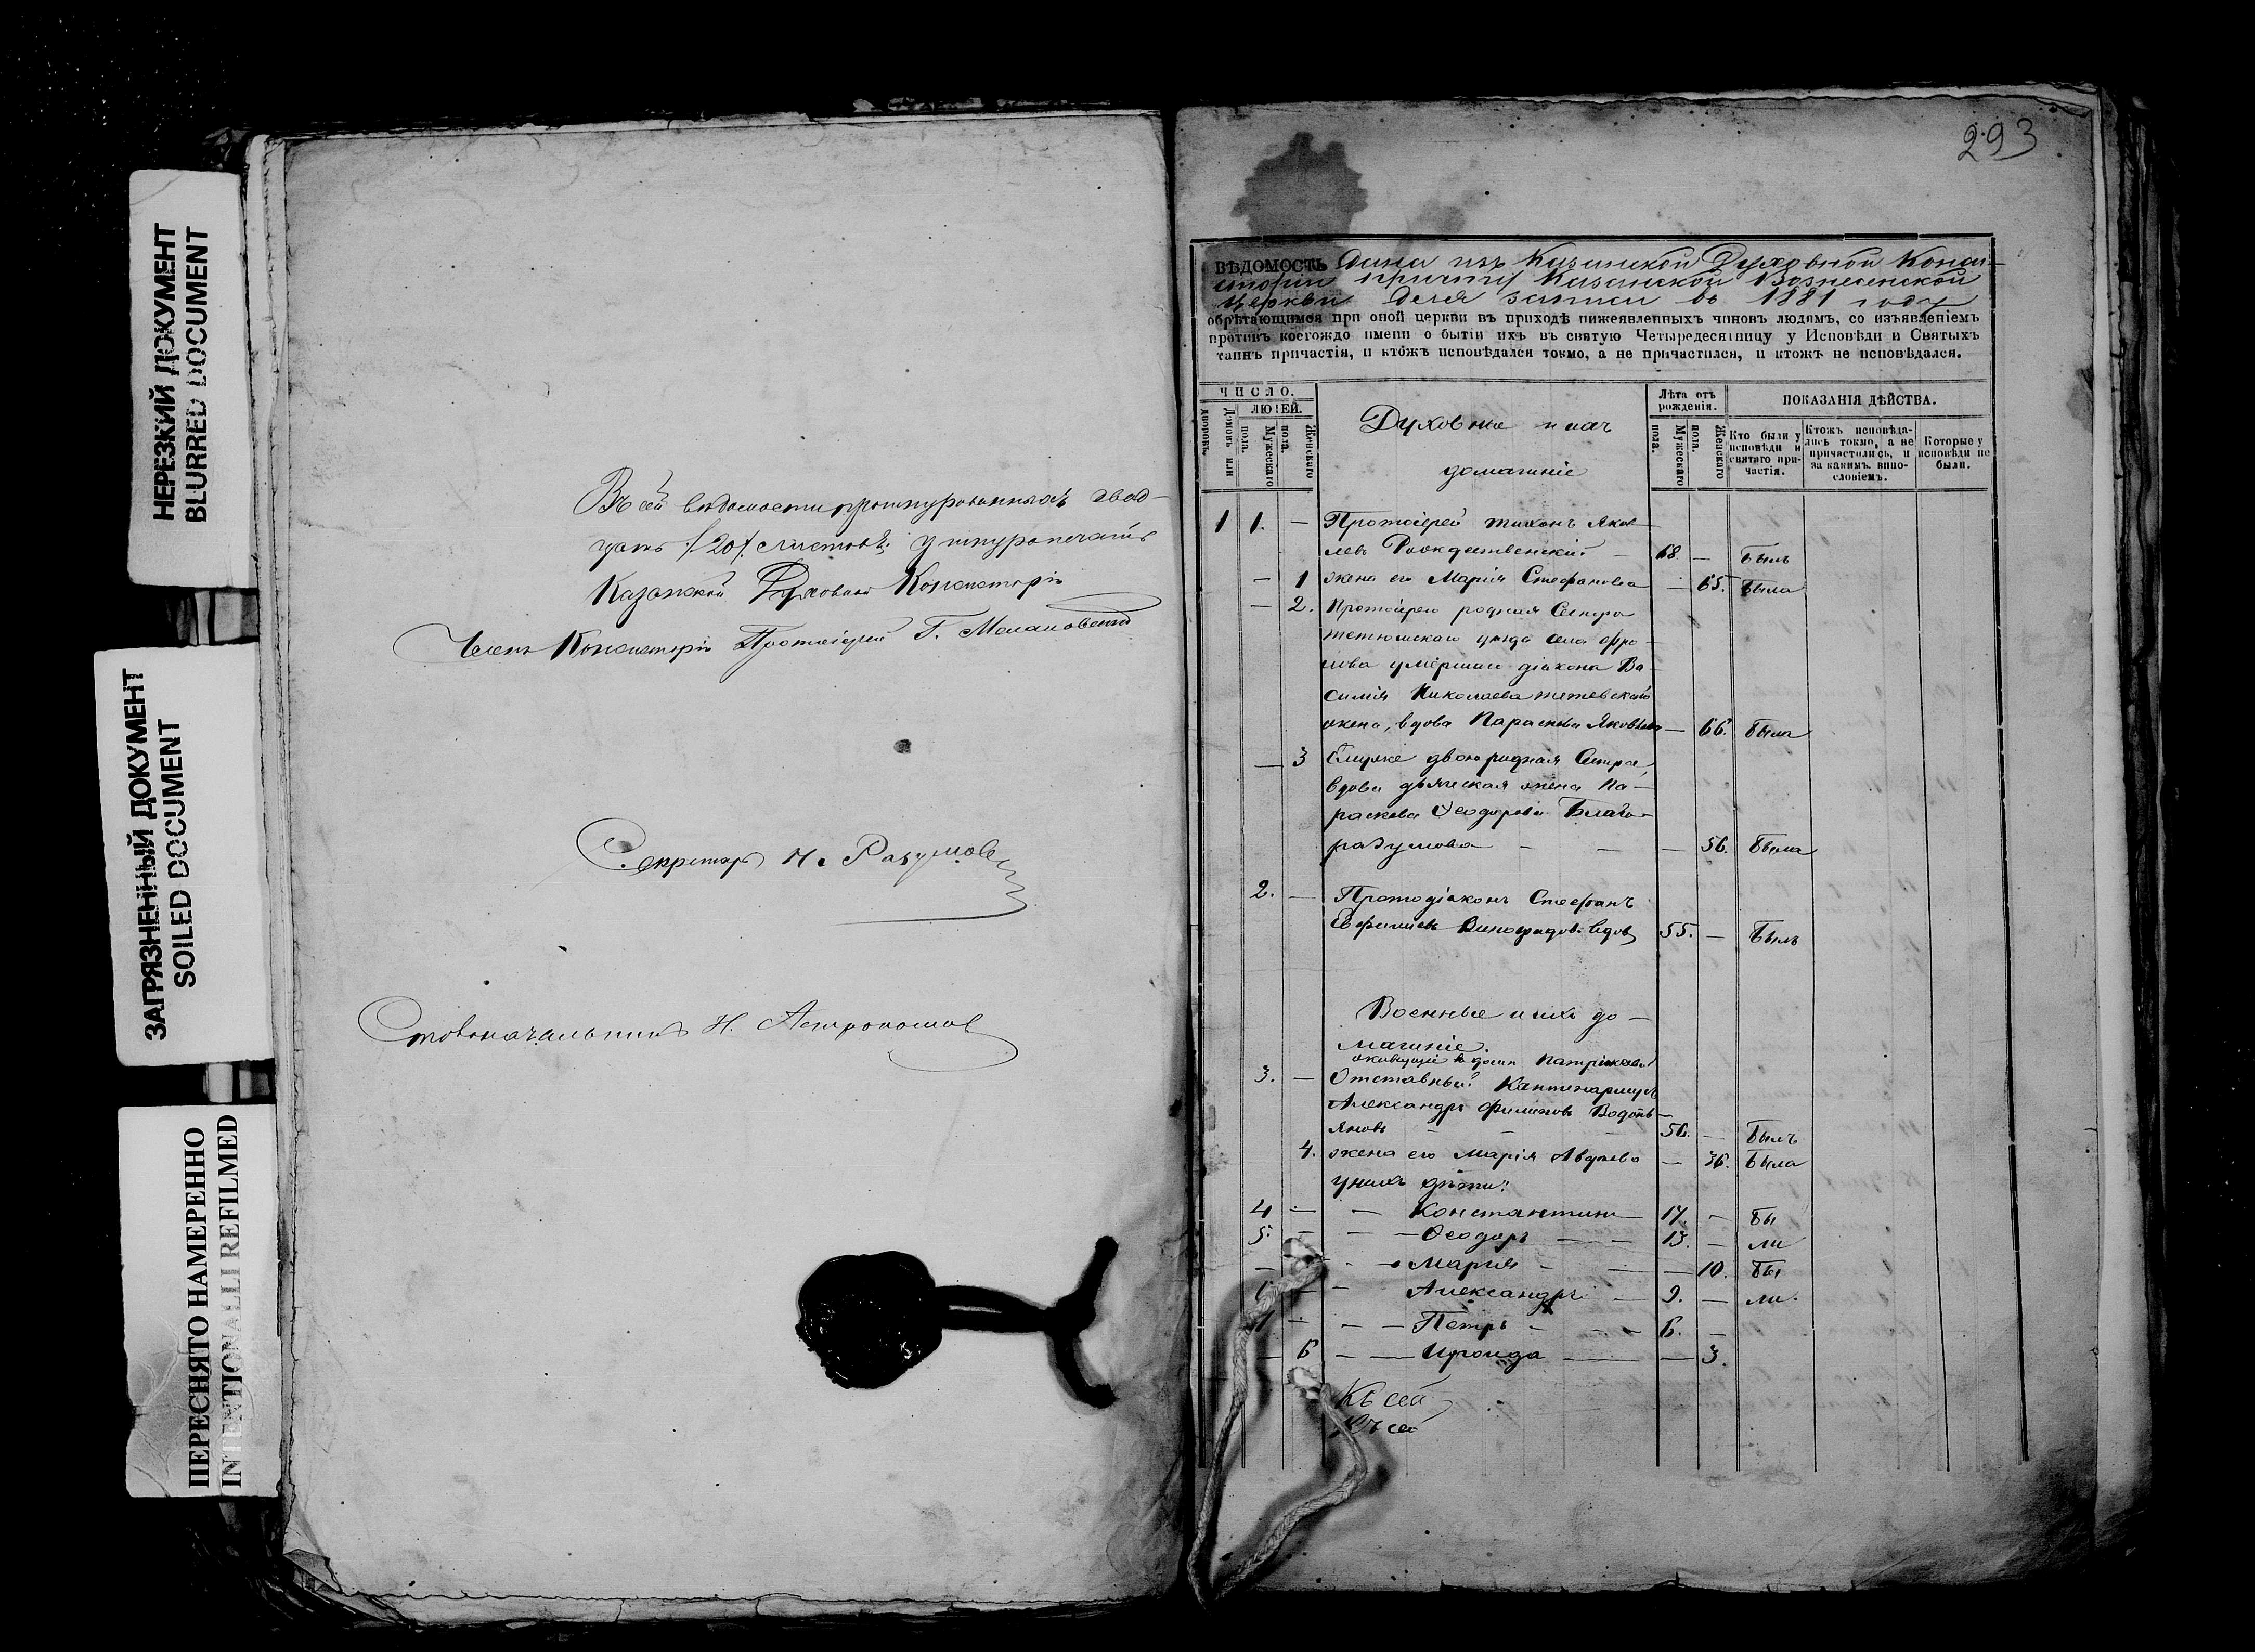 НЕРЕЗКИЙ ДОКУМЕНТ
BLURRED DOCUMENT
ЗАГРЯЗНЕННЫЙ ДОКУМЕНТ
SOILED DOCUMENT
ПЕРЕСНЯТО НАМЕРЕННО
INTENTIONALLI REFILMED
Въ сей ведомости прошнурованныхъ двад-
цать /20/ листовъ; у шнура печать
Казанской Духовной Консисторіи
Членъ Консисторіи Протоіерей Г.
Секретарь Н. Разумов
Столоначальникъ Н.
293
ВѢДОМОСТЬ Дана изъ Казанской Духовной Конси-
сторіи причту Казанской Вознесенской
церкви для записи въ 1881 году
обрѣтающимся при оной церкви въ приходѣ нижеявленныхъ чиновъ людямъ, со изъявленіемъ
противъ коегождо имени о бытіи ихъ въ святую Четыредесятницу у Исповѣди и Святыхъ
таинъ причастія, и ктожъ исповѣдался токмо, а не причастился, и ктожъ не исповѣдался.
ЧИСЛО.
ЛЮДЕЙ.
Домовъ или дворовъ.
Мужескаго пола.
Женскаго пола.
Духовные и ихъ
домашніе
Лѣта отъ рожденія.
Мужескаго пола.
Женскаго пола.
ПОКАЗАНІЯ ДѢЙСТВА.
Кто были у исповѣди и святаго причастія.
Ктожъ исповѣдались токмо, а не причастились, и за какимъ винословіемъ.
Которые у исповѣди не были.
1 1. — Протоіерей Тихонъ Яков-
левъ Рождественскій — 68. — Былъ
— 1 жена его Марія Стефановна — 65. Была
— 2. Протоіерея родная Сестра
Тетюшскаго уезда села Фро-
лова умершаго діакона Ва-
силія Николаева
жена, вдова Параскева Яковлева — 66. Была
— 3 Ему же двоюродная Сестра,
вдова дьяческая жена Па-
раскева Ѳеодорова Благо-
разумова — — — 56. Была
2. — Протодіаконъ Стефанъ
Евфимьев Виноградов вдов 55. — Былъ
Военные и ихъ до-
машніе.
живущіе в доме
3. — Отставный Кантенармусъ
Александръ Филипов Водопь-
яновъ — — 56. — Былъ
4. жена его Марія Авдеева — 36. Была
у нихъ дети:
4 — — Константинъ — 17. — Бы
5. — — — Ѳеодоръ — — 13. — ли
— — Марія — — — 10. Бы
— — Александръ — 9. — ли.
— — — Петръ — — 6. —
— 6 — — Ираида — — 3.
Къ сей
Къ сей